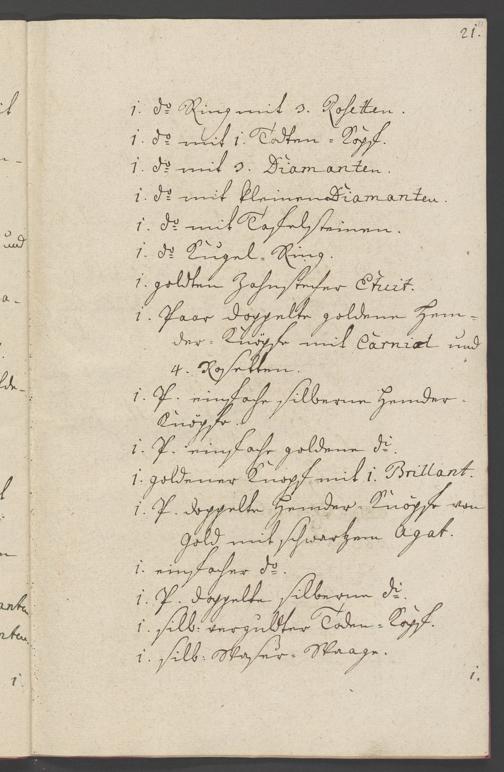 21.
1. do Ring mit 3. Rosetten.
1. do mit 1. Todten-Kopf.
1. do mit 3. Diamanten.
1. do mit kleinen Diamanten.
1. do mit Tafelsteinen.
1. do Kugel-Ring.
1. goldten Zahnstecher Etuit.
1. Paar doppelte goldene Hem-
der-Knöpfe mit Carniol und
4. Rosetten.
1. P. einfache silberne Hemder-
Knöpfe.
1. P. einfache goldene di.
1. goldener Knopf mit 1. Brillant.
1. P. doppelte Hemder-Knöpfe von
Gold mit schwartzem Agat.
1. einfacher do.
1. P. doppelte silberne di.
1. silb: verguldter Toden-Kopf.
1. silb: Waßer-Waage.
1.